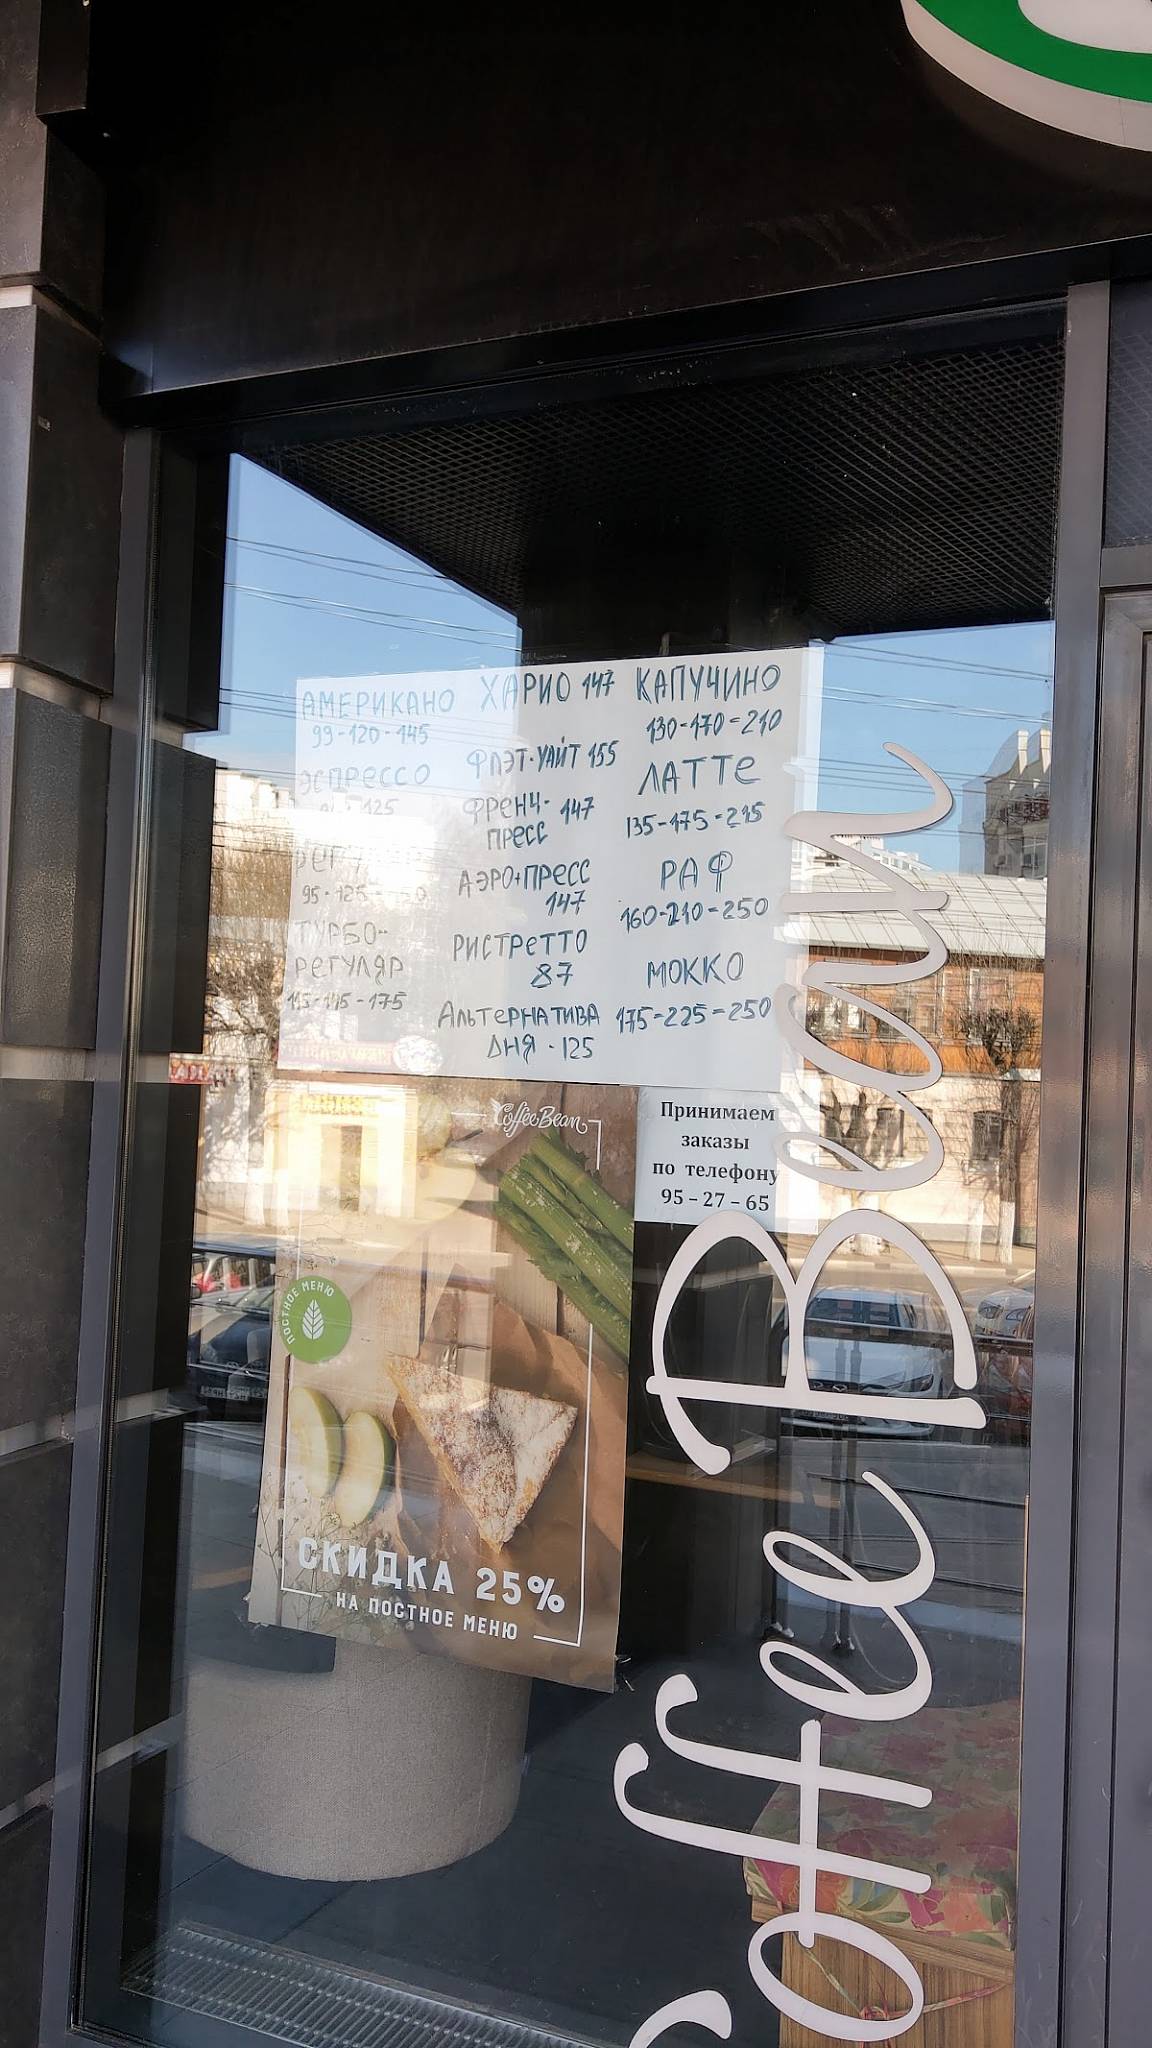 АМЕРИКАНО
99-120-145
ЭСПРЕССО
125
РЕГУЛЯР
95-125-
ТУРБО-
РЕГУЛЯР
115-145-175
ХАРИО 147
ФЛЭТ-УАЙТ 155
ФРЕНЧ-
ПРЕСС 147
АЭРО+ПРЕСС
147
РИСТРЕТТО
87
АЛЬТЕРНАТИВА
ДНЯ - 125
КАПУЧИНО
130-170=210
ЛАТТЕ
135-175=215
РАФ
160-210-250
МОККО
175-225-250
Принимаем
заказы
по телефону
95-27-65
Coffee Bean
ПОСТНОЕ МЕНЮ
СКИДКА 25%
НА ПОСТНОЕ МЕНЮ
Coffee Bean